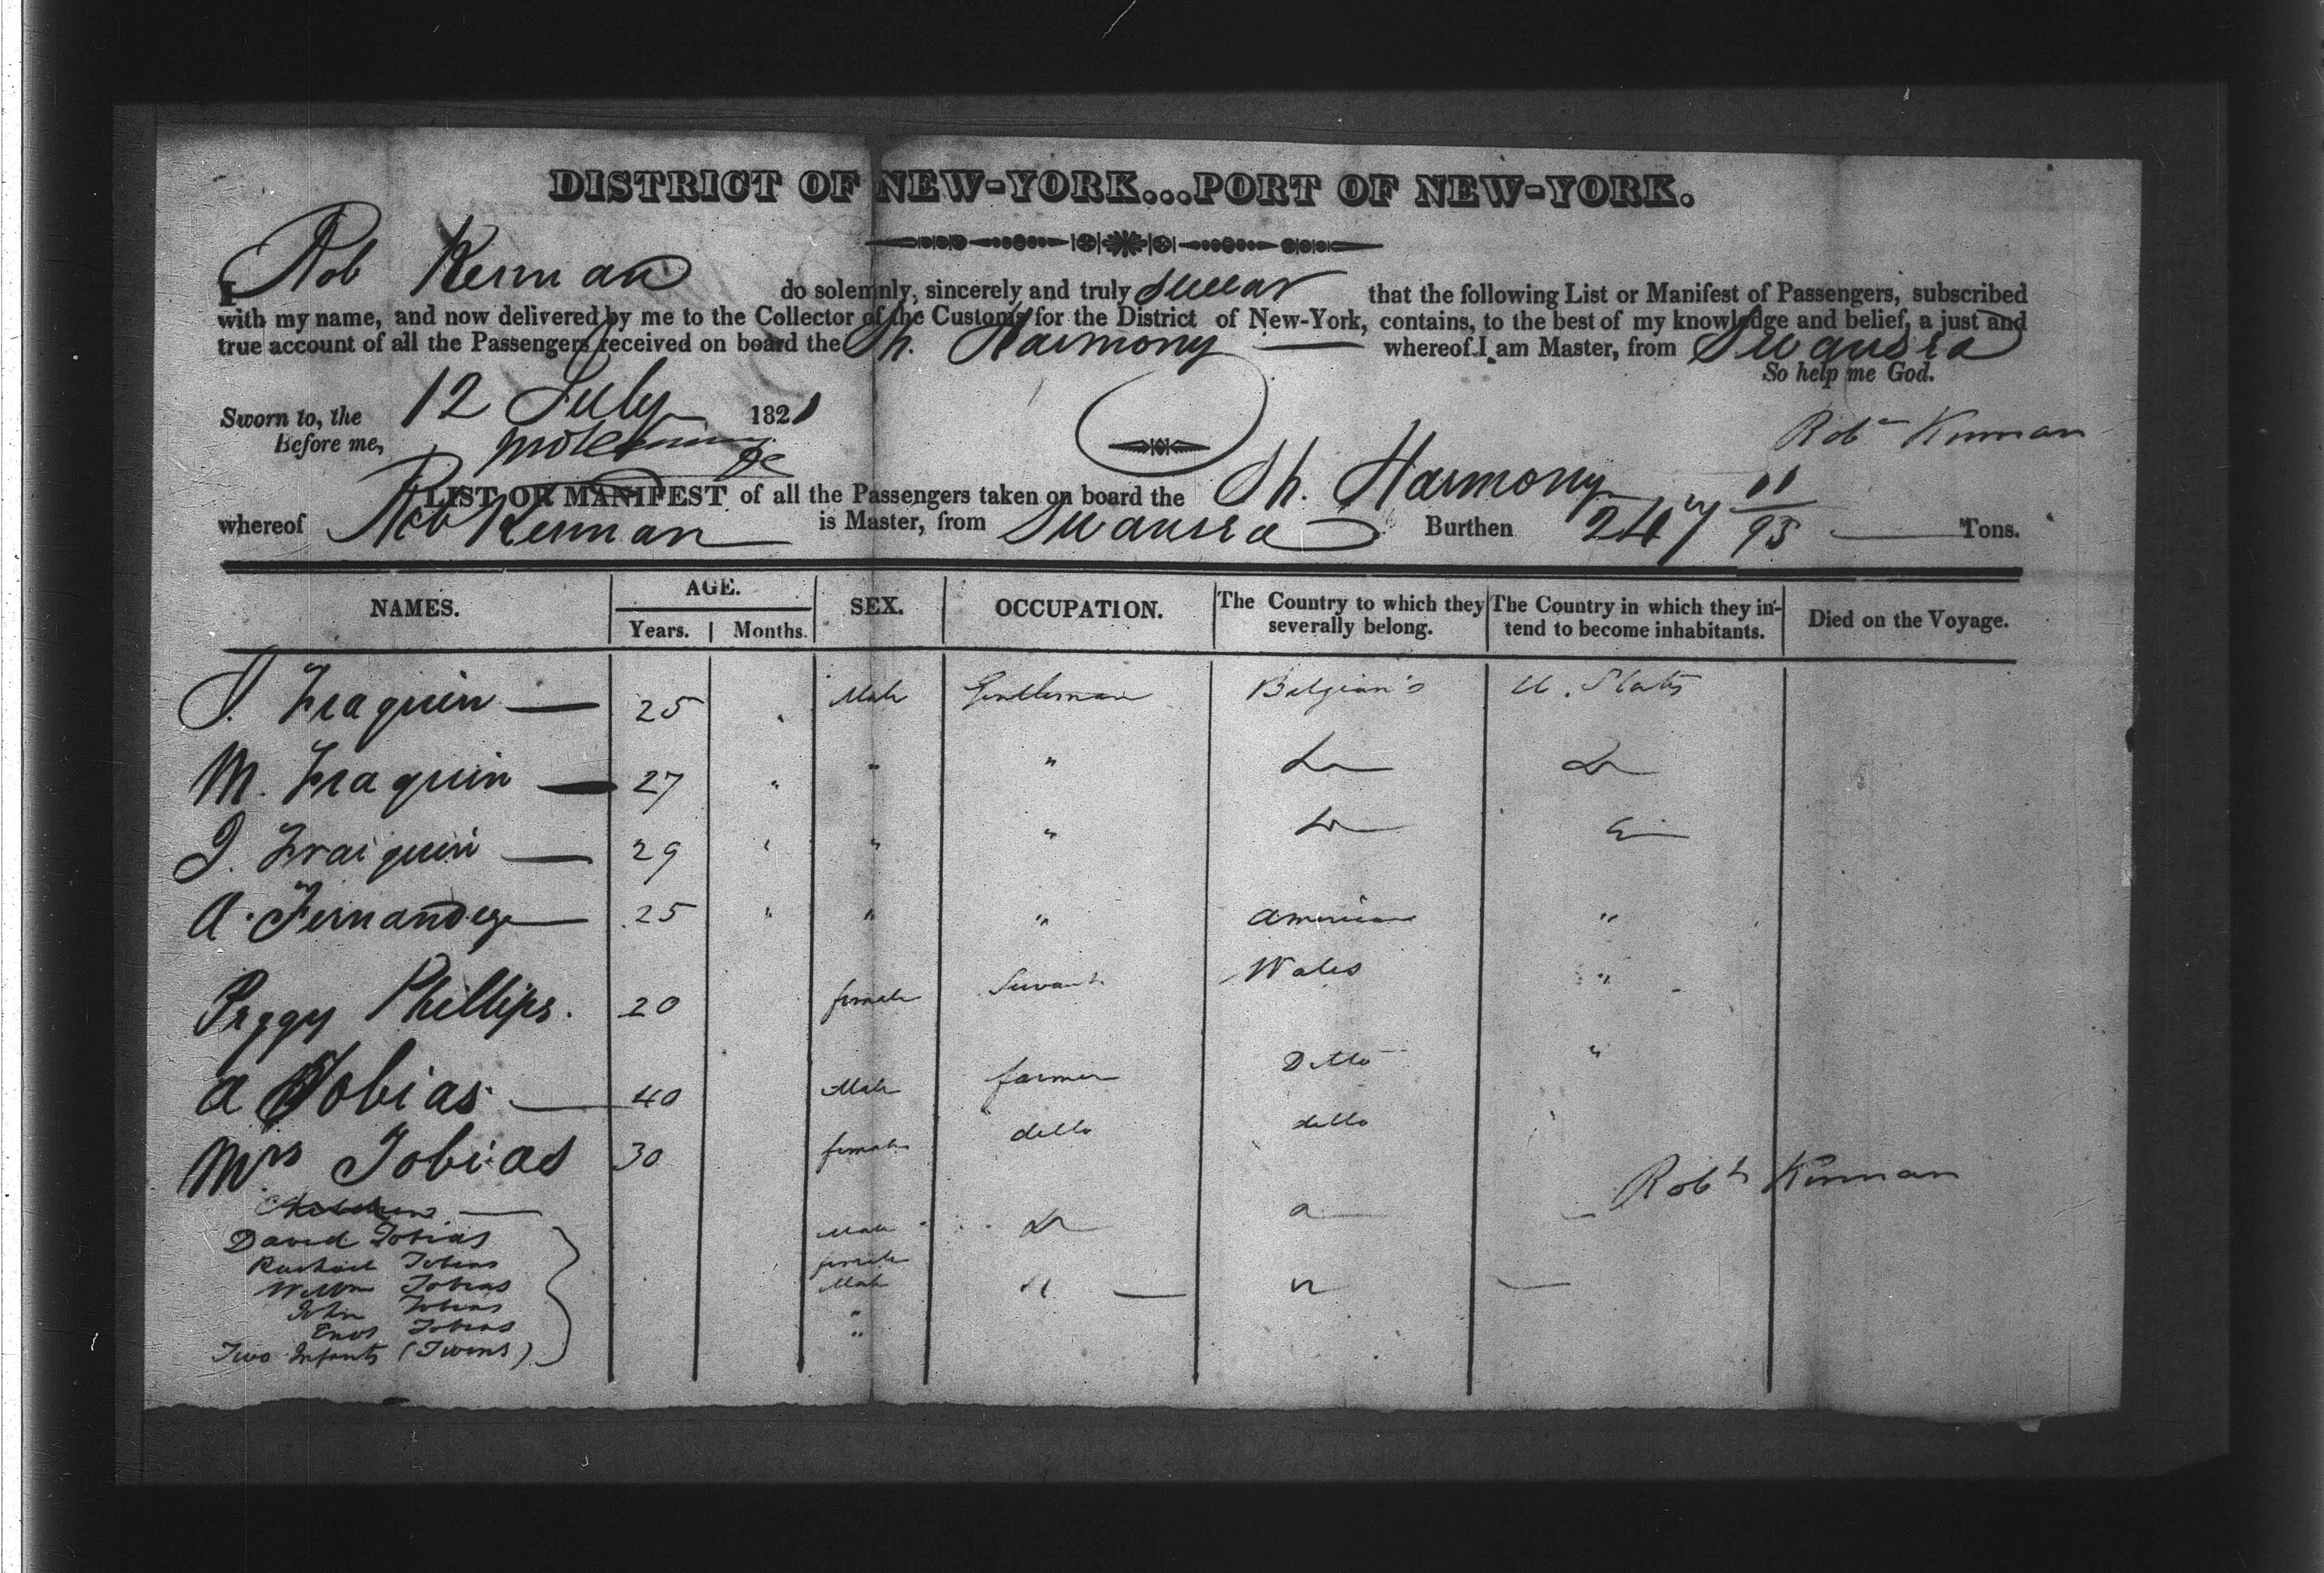 DISTRICT OF NEW-YORK...PORT OF NEW-YORK.
I Rob Kerman do solemnly, sincerely and truly swear that the following List or Manifest of Passengers, subscribed
with my name, and now delivered by me to the Collector of the Customs for the District of New-York, contains, to the best of my knowledge and belief, a just and
true account of all the Passengers received on board the Sh. Harmony whereof I am Master, from Swansea
So help me God.
Sworn to, the 12 July 1821
Before me,
Kerman
LIST OR MANIFEST of all the Passengers taken on board the Sh. Harmony
whereof Rob Kerman is Master, from Swansea Burthen 247 11/95 Tons.
NAMES. AGE. SEX. OCCUPATION. The Country to which they severally belong. The Country in which they intend to become inhabitants. Died on the Voyage.
Years. Months.
J. Fraquin 25 Male Gentleman Belgian's U. States
M. Fraquin 27 " " Do Do
J. Fraiquin 29 " "  Do
A. Fernandez 25 " " " American "
Peggy Phillips. 20 female Servant Wales "
A Tobias 40 Male farmer Ditto "
Mrs Tobias 30 female ditto ditto
Robt Kerman
Children
David Tobias Male Do
Rachael Tobias female
Willm Tobias Male "
John Tobias "
Enos Tobias "
Two Infants (Twins)